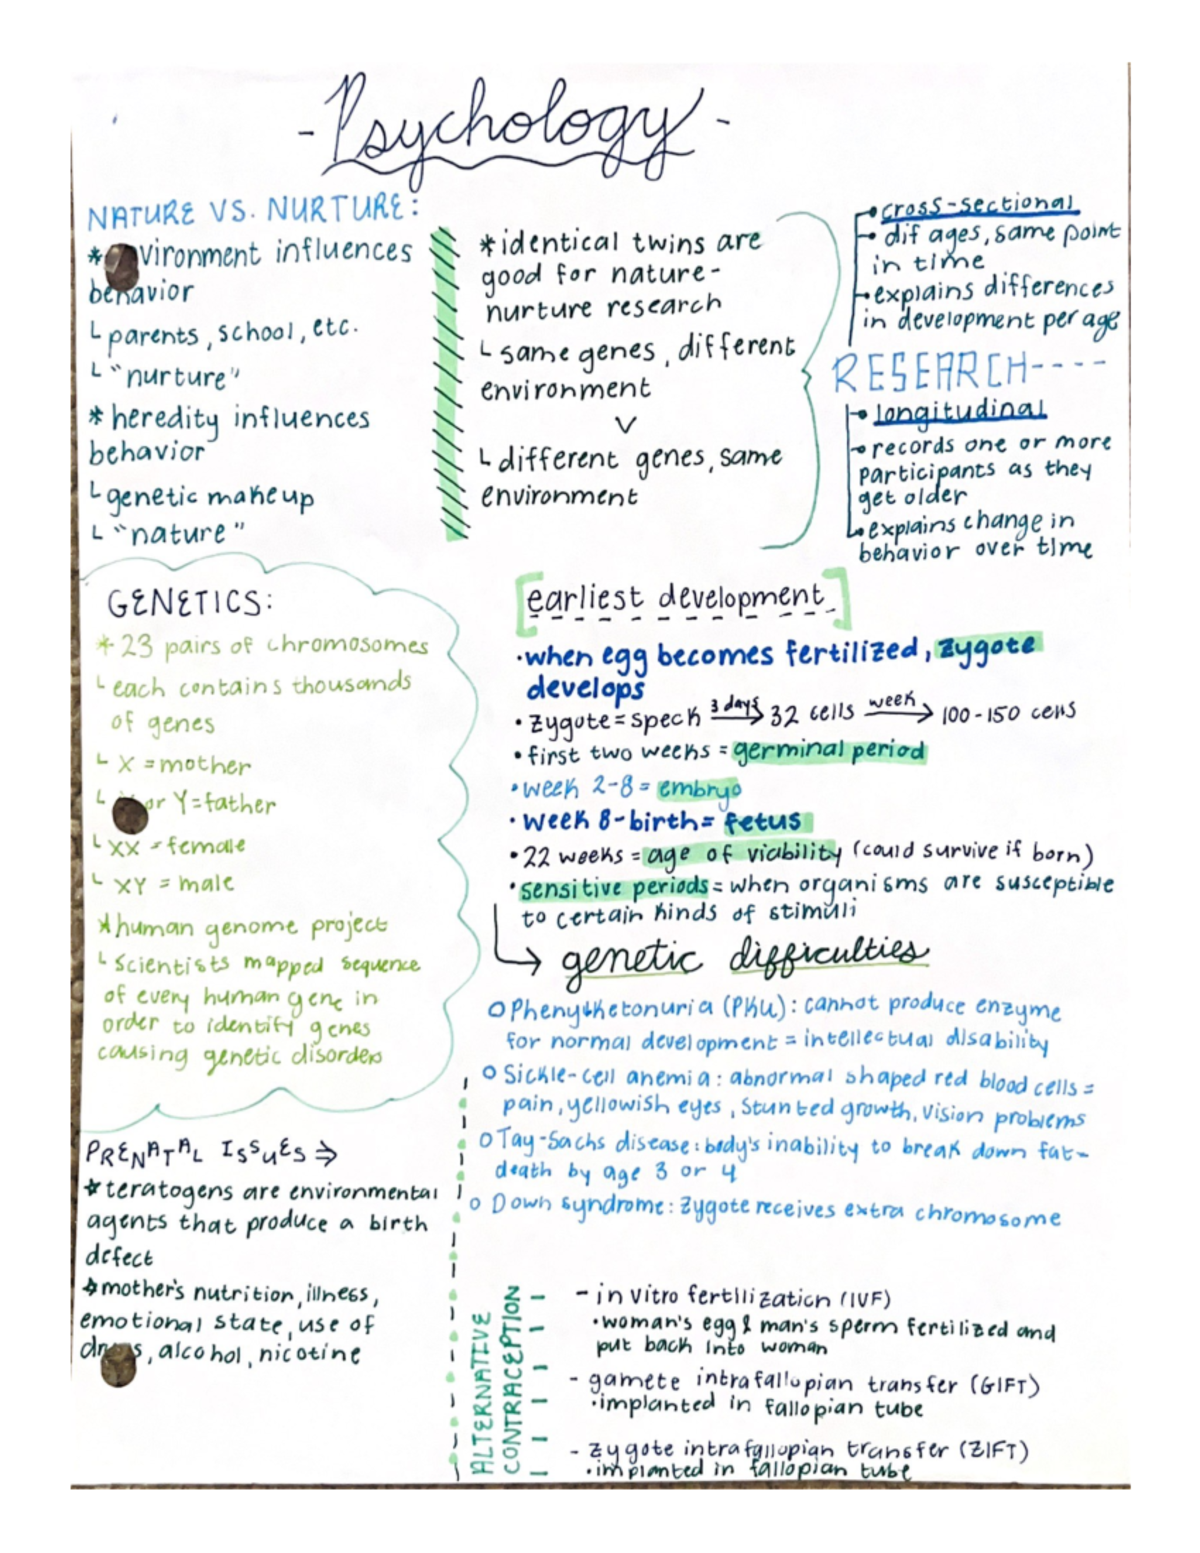 - Psychology -
NATURE VS. NURTURE:
* environment influences
behavior
└ parents, school, etc.
└ "nurture"
* heredity influences
behavior
└ genetic makeup
└ "nature"
* identical twins are
good for nature-
nurture research
└ same genes, different
environment
v
└ different genes, same
environment
cross-sectional
dif ages, same point
in time
explains differences
in development per age
RESEARCH----
longitudinal
records one or more
participants as they
get older
explains change in
behavior over time
GENETICS:
* 23 pairs of chromosomes
└ each contains thousands
of genes
└ X = mother
└ or Y = father
└ XX = female
└ XY = male
* human genome project
└ scientists mapped sequence
of every human gene in
order to identify genes
causing genetic disorders
[earliest development]
• when egg becomes fertilized, zygote
develops
• zygote = speck 3 days → 32 cells week → 100-150 cells
• first two weeks = germinal period
• week 2-8 = embryo
• week 8-birth = fetus
• 22 weeks = age of viability (could survive if born)
• sensitive periods = when organisms are susceptible
to certain kinds of stimuli
→ genetic difficulties
o Phenylketonuria (PKU): cannot produce enzyme
for normal development = intellectual disability
o Sickle-cell anemia: abnormal shaped red blood cells =
pain, yellowish eyes, stunted growth, vision problems
o Tay-Sachs disease: body's inability to break down fat-
death by age 3 or 4
o Down syndrome: zygote receives extra chromosome
PRENATAL ISSUES ⇒
* teratogens are environmental
agents that produce a birth
defect
* mother's nutrition, illness,
emotional state, use of
drugs, alcohol, nicotine
ALTERNATIVE
CONTRACEPTION
- in vitro fertilization (IVF)
• woman's egg & man's sperm fertilized and
put back into woman
- gamete intrafallopian transfer (GIFT)
• implanted in fallopian tube
- zygote intrafallopian transfer (ZIFT)
• implanted in fallopian tube